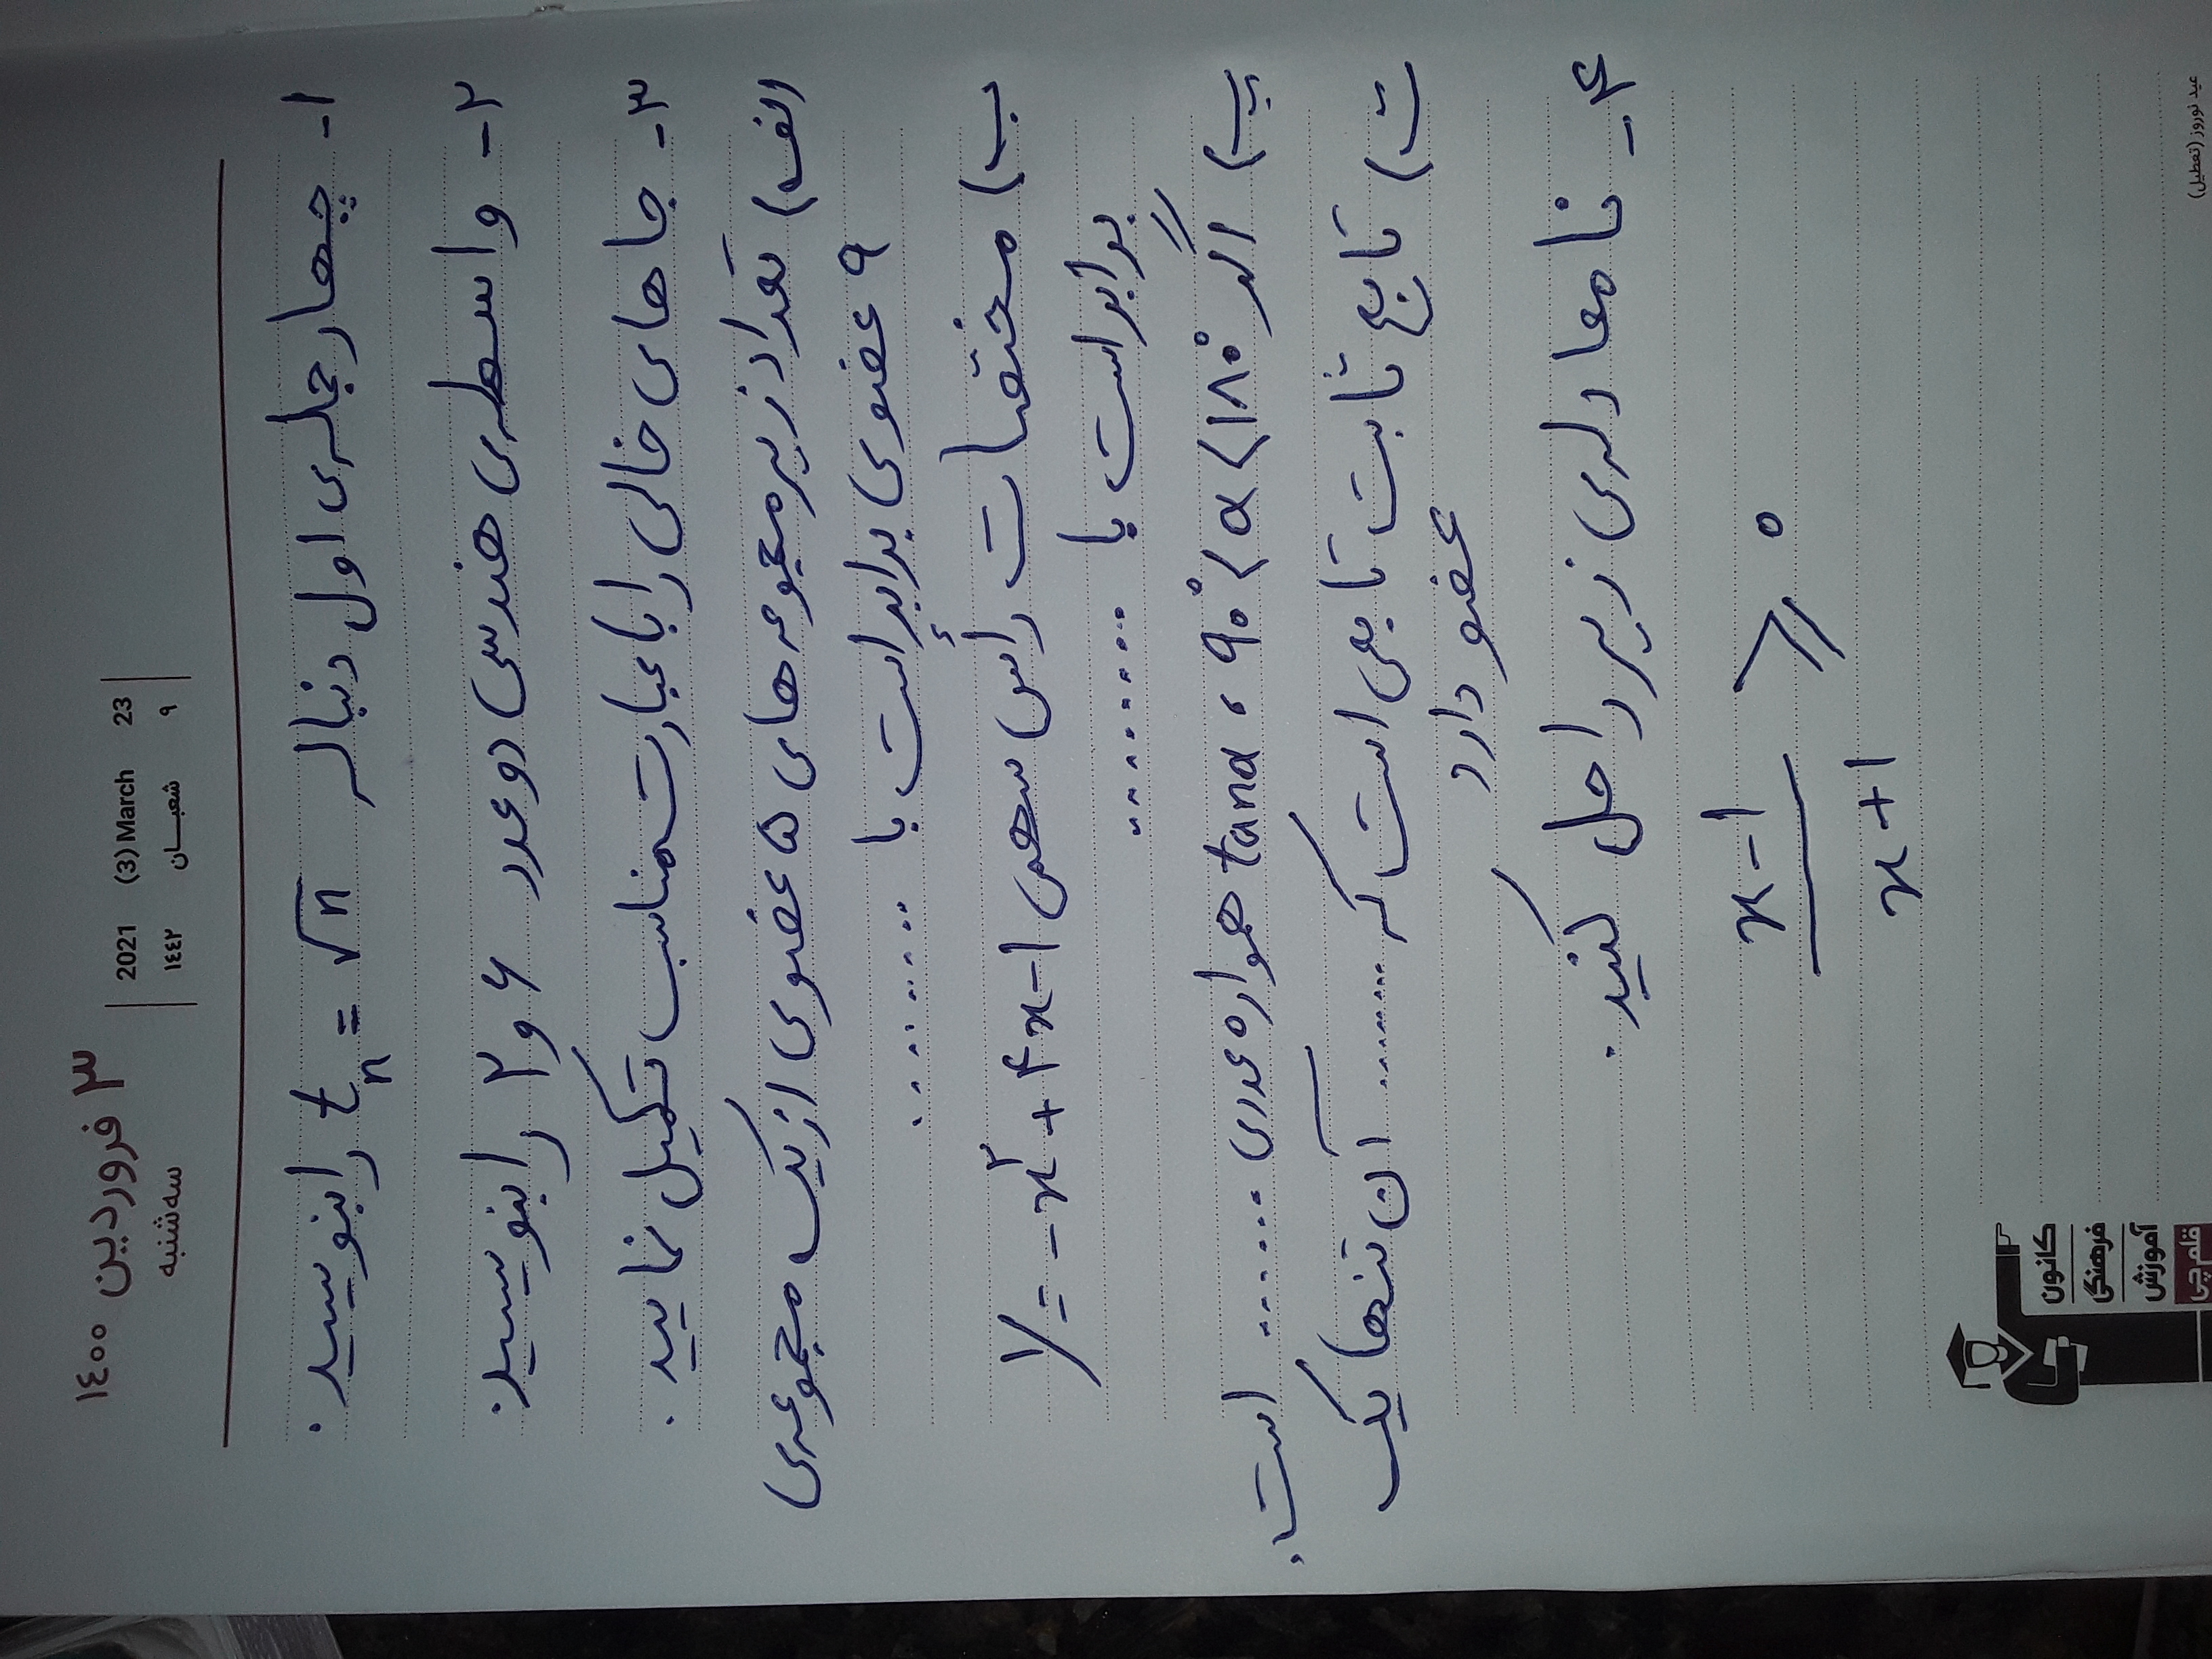 ۳ فروردین ۱۴۰۰
سه‌شنبه
2021 (3) March 23
۱۴۴۲ شعبـان ۹
۱- چهار جمله‌ی اول دنباله tₙ = √n را بنویسید.
۲- واسطه‌ی هندسی دو عدد ۶ و ۲ را بنویسید.
۳- جاهای خالی را با عبارت مناسب تکمیل نمایید.
الف) تعداد زیر مجموعه های ۵ عضوی از یک مجموعه‌ی
۹ عضوی برابر است با ..........
ب) مختصات رأس سهمی y = -x² + ۴x - ۱
برابر است با .........
پ) اگر ۹۰° < α < ۱۸۰° ، tanα همواره عددی ....... است.
ت) تابع ثابت تابعی است که ........ آن تنها یک
عضو دارد
۴- نا معادله‌ی زیر را حل کنید.
x-1
⩾ ۰
x+1
کانون
فرهنگی
آموزش
قلم‌چی
عید نوروز (تعطیل)